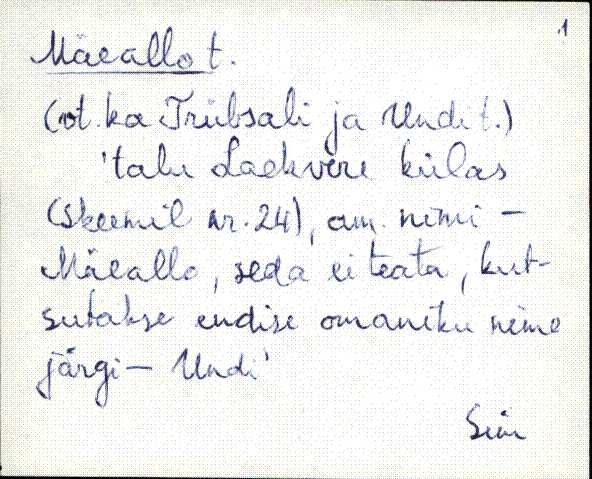 1
Mäeallo t.
(vt. ka Trübsali ja Undi t.)
'talu Laekvere külas
(skeemil nr. 24), am. nimi –
Mäeallo, seda ei teata, kut-
sutakse endise omaniku nime
järgi – Undi'